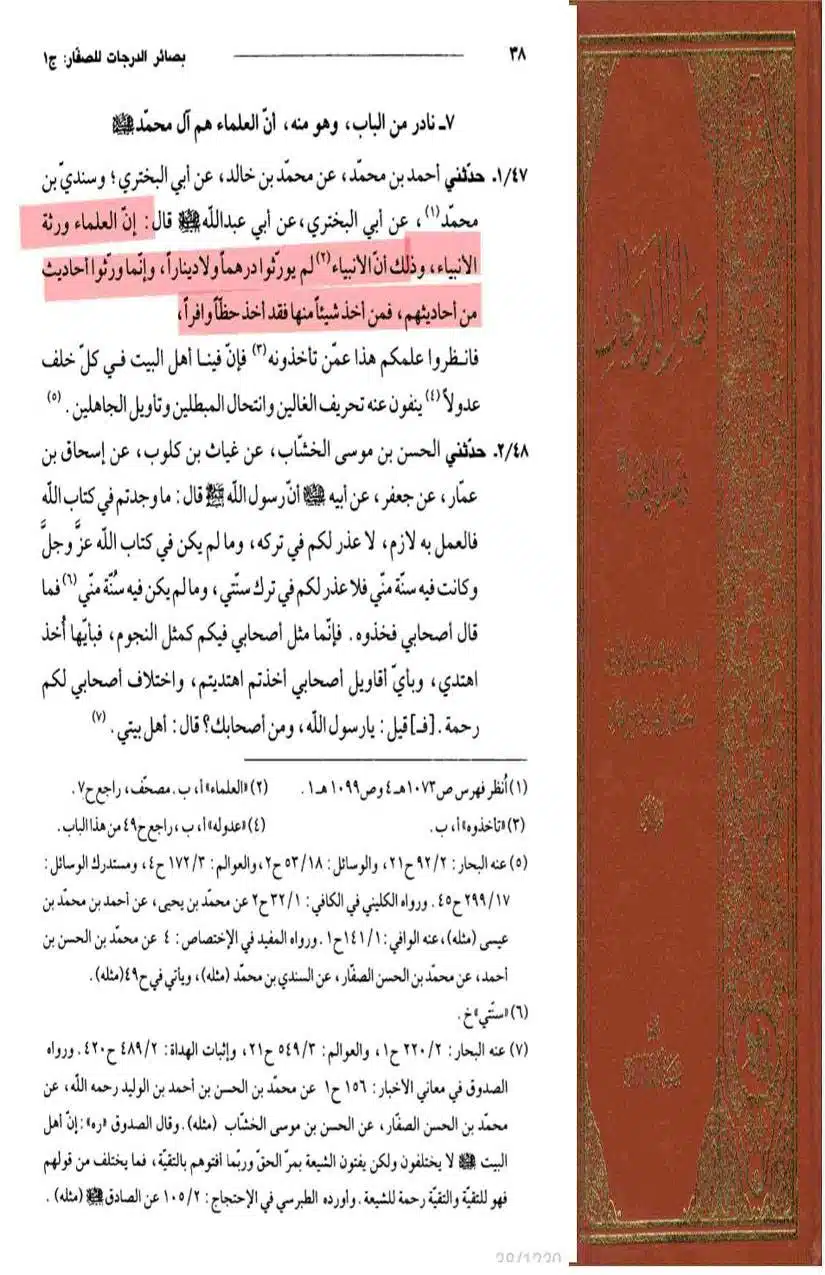 ٣٨
بصائر الدرجات للصفّار: ج١
٧ـ نادر من الباب، وهو منه، أنّ العلماء هم آل محمّد ﷺ
١/٤٧. حدّثني أحمد بن محمّد، عن محمّد بن خالد، عن أبي البختري؛ وسنديّ بن
محمّد(١)، عن أبي البختري، عن أبي عبدالله ﷺ قال: إنّ العلماء ورثة
الانبياء، وذلك أنّ الانبياء(٢) لم يورّثوا درهماً ولا ديناراً، وإنّما ورّثوا أحاديث
من أحاديثهم، فمن أخذ شيئاً منها فقد أخذ حظّاً وافراً،
فانظروا علمكم هذا عمّن تأخذونه(٣) فإنّ فينا أهل البيت في كلّ خلف
عدولاً(٤) ينفون عنه تحريف الغالين وانتحال المبطلين وتاويل الجاهلين. (٥)
٢/٤٨. حدّثني الحسن بن موسى الخشّاب، عن غياث بن كلوب، عن إسحاق بن
عمّار، عن جعفر، عن أبيه أنّ رسول الله ﷺ قال: ما وجدتم في كتاب الله
فالعمل به لازم، لا عذر لكم في تركه، وما لم يكن في كتاب الله عزَّ وجلَّ
وكانت فيه سنّة منّي فلا عذر لكم في ترك سنّتي، وما لم يكن فيه سُنّة منّي(٦) فما
قال أصحابي فخذوه. فإنّما مثل أصحابي فيكم كمثل النجوم، فبأيّها أُخذ
اهتدي، وبأيّ أقاويل أصحابي أخذتم اهتديتم، واختلاف أصحابي لكم
رحمة. [فـ] قيل: يارسول الله، ومن أصحابك؟ قال: أهل بيتي. (٧)
(١) اُنظر فهرس ص١٠٧٣هـ٤ وص١٠٩٩هـ١. (٢) «العلماء» أ، ب. مصحّف، راجع ح٧.
(٣) «تأخذوه» أ، ب. (٤) «عدوله» أ، ب، راجع ح٤٩ من هذا الباب.
(٥) عنه البحار: ٩٢/٢ ح٢١، والوسائل: ٥٣/١٨ ح٢، والعوالم: ١٧٢/٣ ح٤، ومستدرك الوسائل:
٢٩٩/١٧ ح٤٥. ورواه الكليني في الكافي: ٣٢/١ ح٢ عن محمّد بن يحيى، عن أحمد بن محمّد بن
عيسى (مثله)، عنه الوافي: ١٤١/١ ح١. ورواه المفيد في الإختصاص: ٤ عن محمّد بن الحسن بن
أحمد، عن محمّد بن الحسن الصفّار، عن السندي بن محمّد (مثله)، ويأتي في ح٤٩ (مثله).
(٦) «سنّتي» خ.
(٧) عنه البحار: ٢٢٠/٢ ح١، والعوالم: ٥٤٩/٣ ح٢١، وإثبات الهداة: ٤٨٩/٢ ح٤٢٠. ورواه
الصدوق في معاني الاخبار: ١٥٦ ح١ عن محمّد بن الحسن بن أحمد بن الوليد رحمه الله، عن
محمّد بن الحسن الصفّار، عن الحسن بن موسى الخشّاب (مثله). وقال الصدوق «ره»: إنّ أهل
البيت لا يختلفون ولكن يفتون الشيعة بمرّ الحقّ وربّما أفتوهم بالتقيّة، فما يختلف من قولهم
فهو للتقيّة والتقيّة رحمة للشيعة. وأورده الطبرسي في الإحتجاج: ١٠٥/٢ عن الصادق (مثله).
38/1220